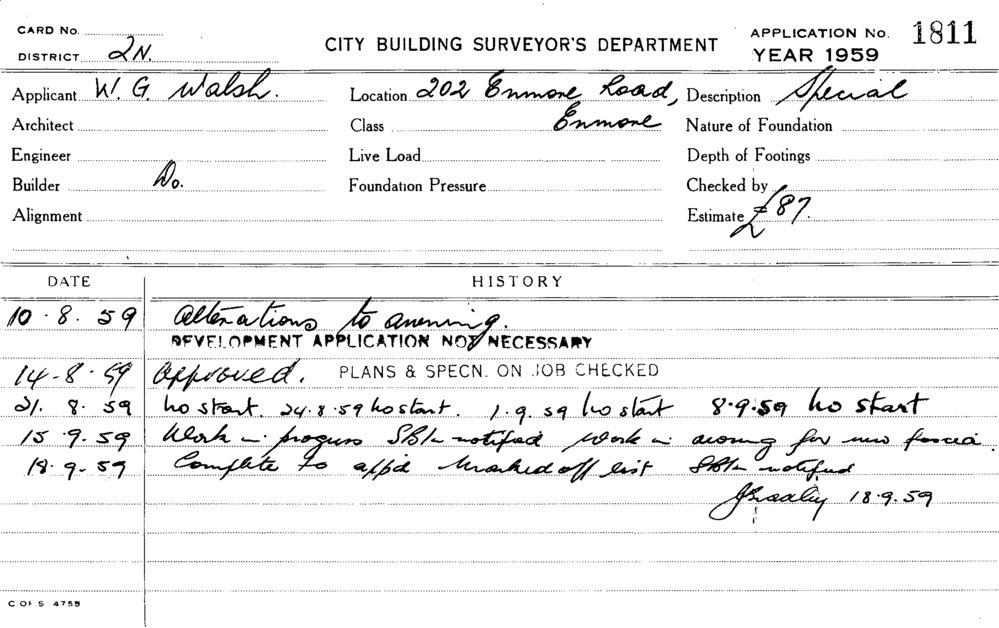 CARD No.
DISTRICT 2N.
CITY BUILDING SURVEYOR'S DEPARTMENT
APPLICATION No. 1811
YEAR 1959
Applicant W. G. Walsh.
Location 202 Enmore Road,
Description Special
Architect
Class Enmore
Nature of Foundation
Engineer
Live Load
Depth of Footings
Builder Do.
Foundation Pressure
Checked by
Alignment
Estimate £87.
DATE HISTORY
10.8.59 Alterations to awning.
DEVELOPMENT APPLICATION NOT NECESSARY
14-8-59 Approved. PLANS & SPECN. ON JOB CHECKED
21.8.59 No start. 24.8.59 No start. 1.9.59 No start 8.9.59 No start
15.9.59 Work in progress notified work in awning for new fascia.
18.9.59 Complete to app'd Marked off list notified
18.9.59
C OF S 4755